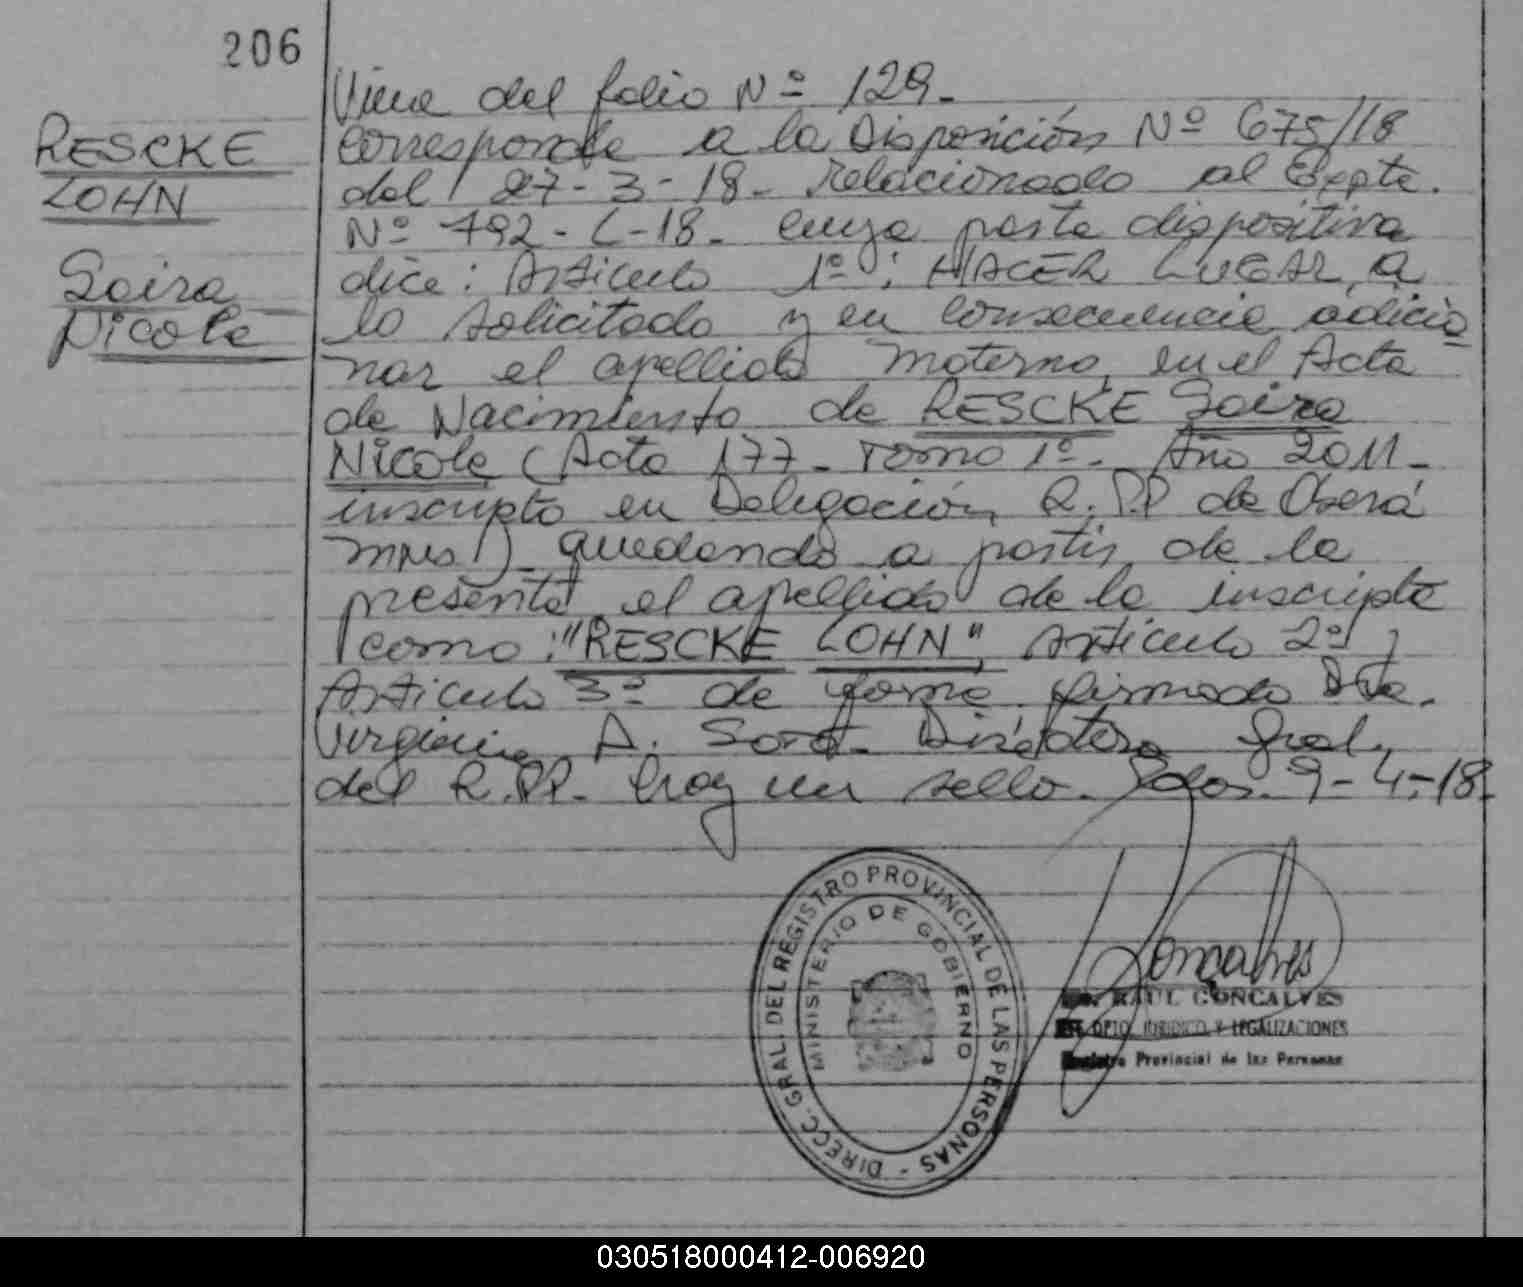 206
RESCKE
LOHN
Saira
Nicole
Viene del folio Nº 129.
Corresponde a la Disposición Nº 675/18
del 27-3-18. relacionado al Expte.
Nº 792-L-18. cuya parte dispositiva
dice: Artículo 1º: HACER LUGAR a
lo solicitado y en consecuencia adicio
nar el apellido materno, en el Acta
de Nacimiento de RESCKE Saira
Nicole (Acta 177. Tomo 1º. Año 2011.
inscripta en Delegación R.PP de Oberá
Mnes.) quedando a partir de la
presente el apellido de la inscripta
como: "RESCKE LOHN". Artículo 2º y
Artículo 3º de forma. firmado Dra.
Virginia A. Directora Gral.
del R.PP. hay un sello. Pdas. 9-4-18.
DIRECC. GRAL. DEL REGISTRO PROVINCIAL DE LAS PERSONAS -
MINISTERIO DE GOBIERNO
Goncalves
RAUL GONCALVES
DPTO. JURIDICO Y LEGALIZACIONES
Registro Provincial de las Personas
030518000412-006920